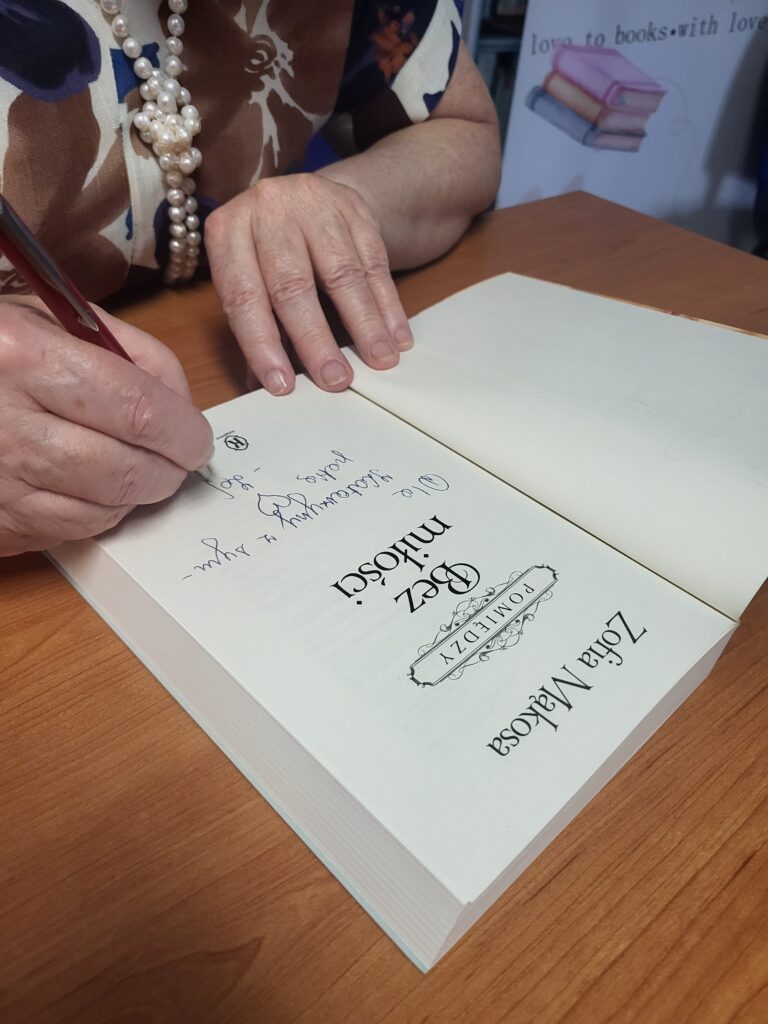 love to books•with love
Zofia Mąkosa
POMIĘDZY
Bez
miłości
Dla
Katarzyny z sym-
patią